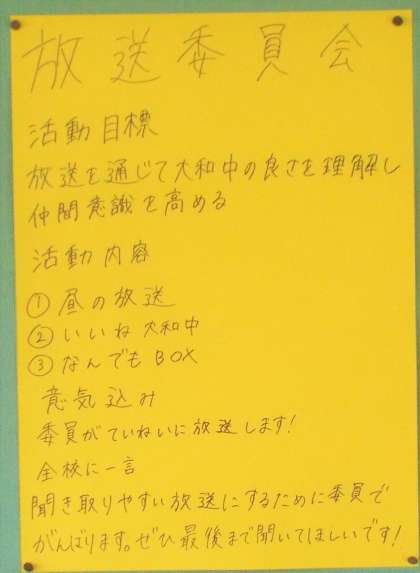 放送委員会
活動目標
放送を通じて大和中の良さを理解し
仲間意識を高める
活動内容
①昼の放送
②いいね大和中
③なんでもBOX
意気込み
委員がていねいに放送します!
全校に一言
聞き取りやすい放送にするために委員で
がんばります。ぜひ最後まで聞いてほしいです!